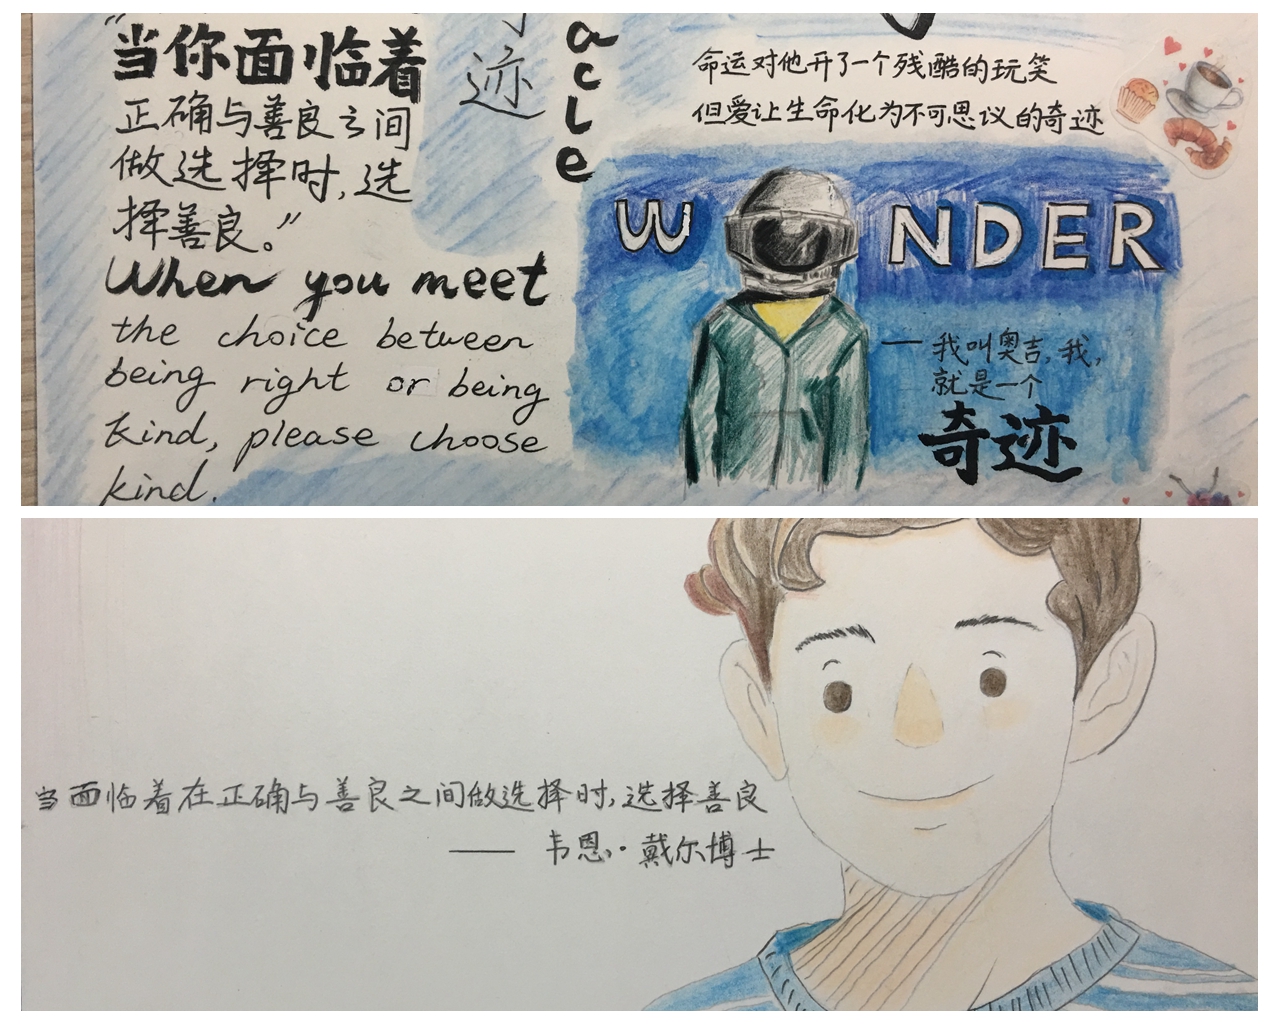 “当你面临着
正确与善良之间
做选择时,选
择善良。”
When you meet
the choice between
being right or being
kind, please choose
kind.
迹
acle
命运对他开了一个残酷的玩笑
但爱让生命化为不可思议的奇迹
WONDER
——我叫奥吉,我,
就是一个
奇迹
当面临着在正确与善良之间做选择时,选择善良
—— 韦恩·戴尔博士